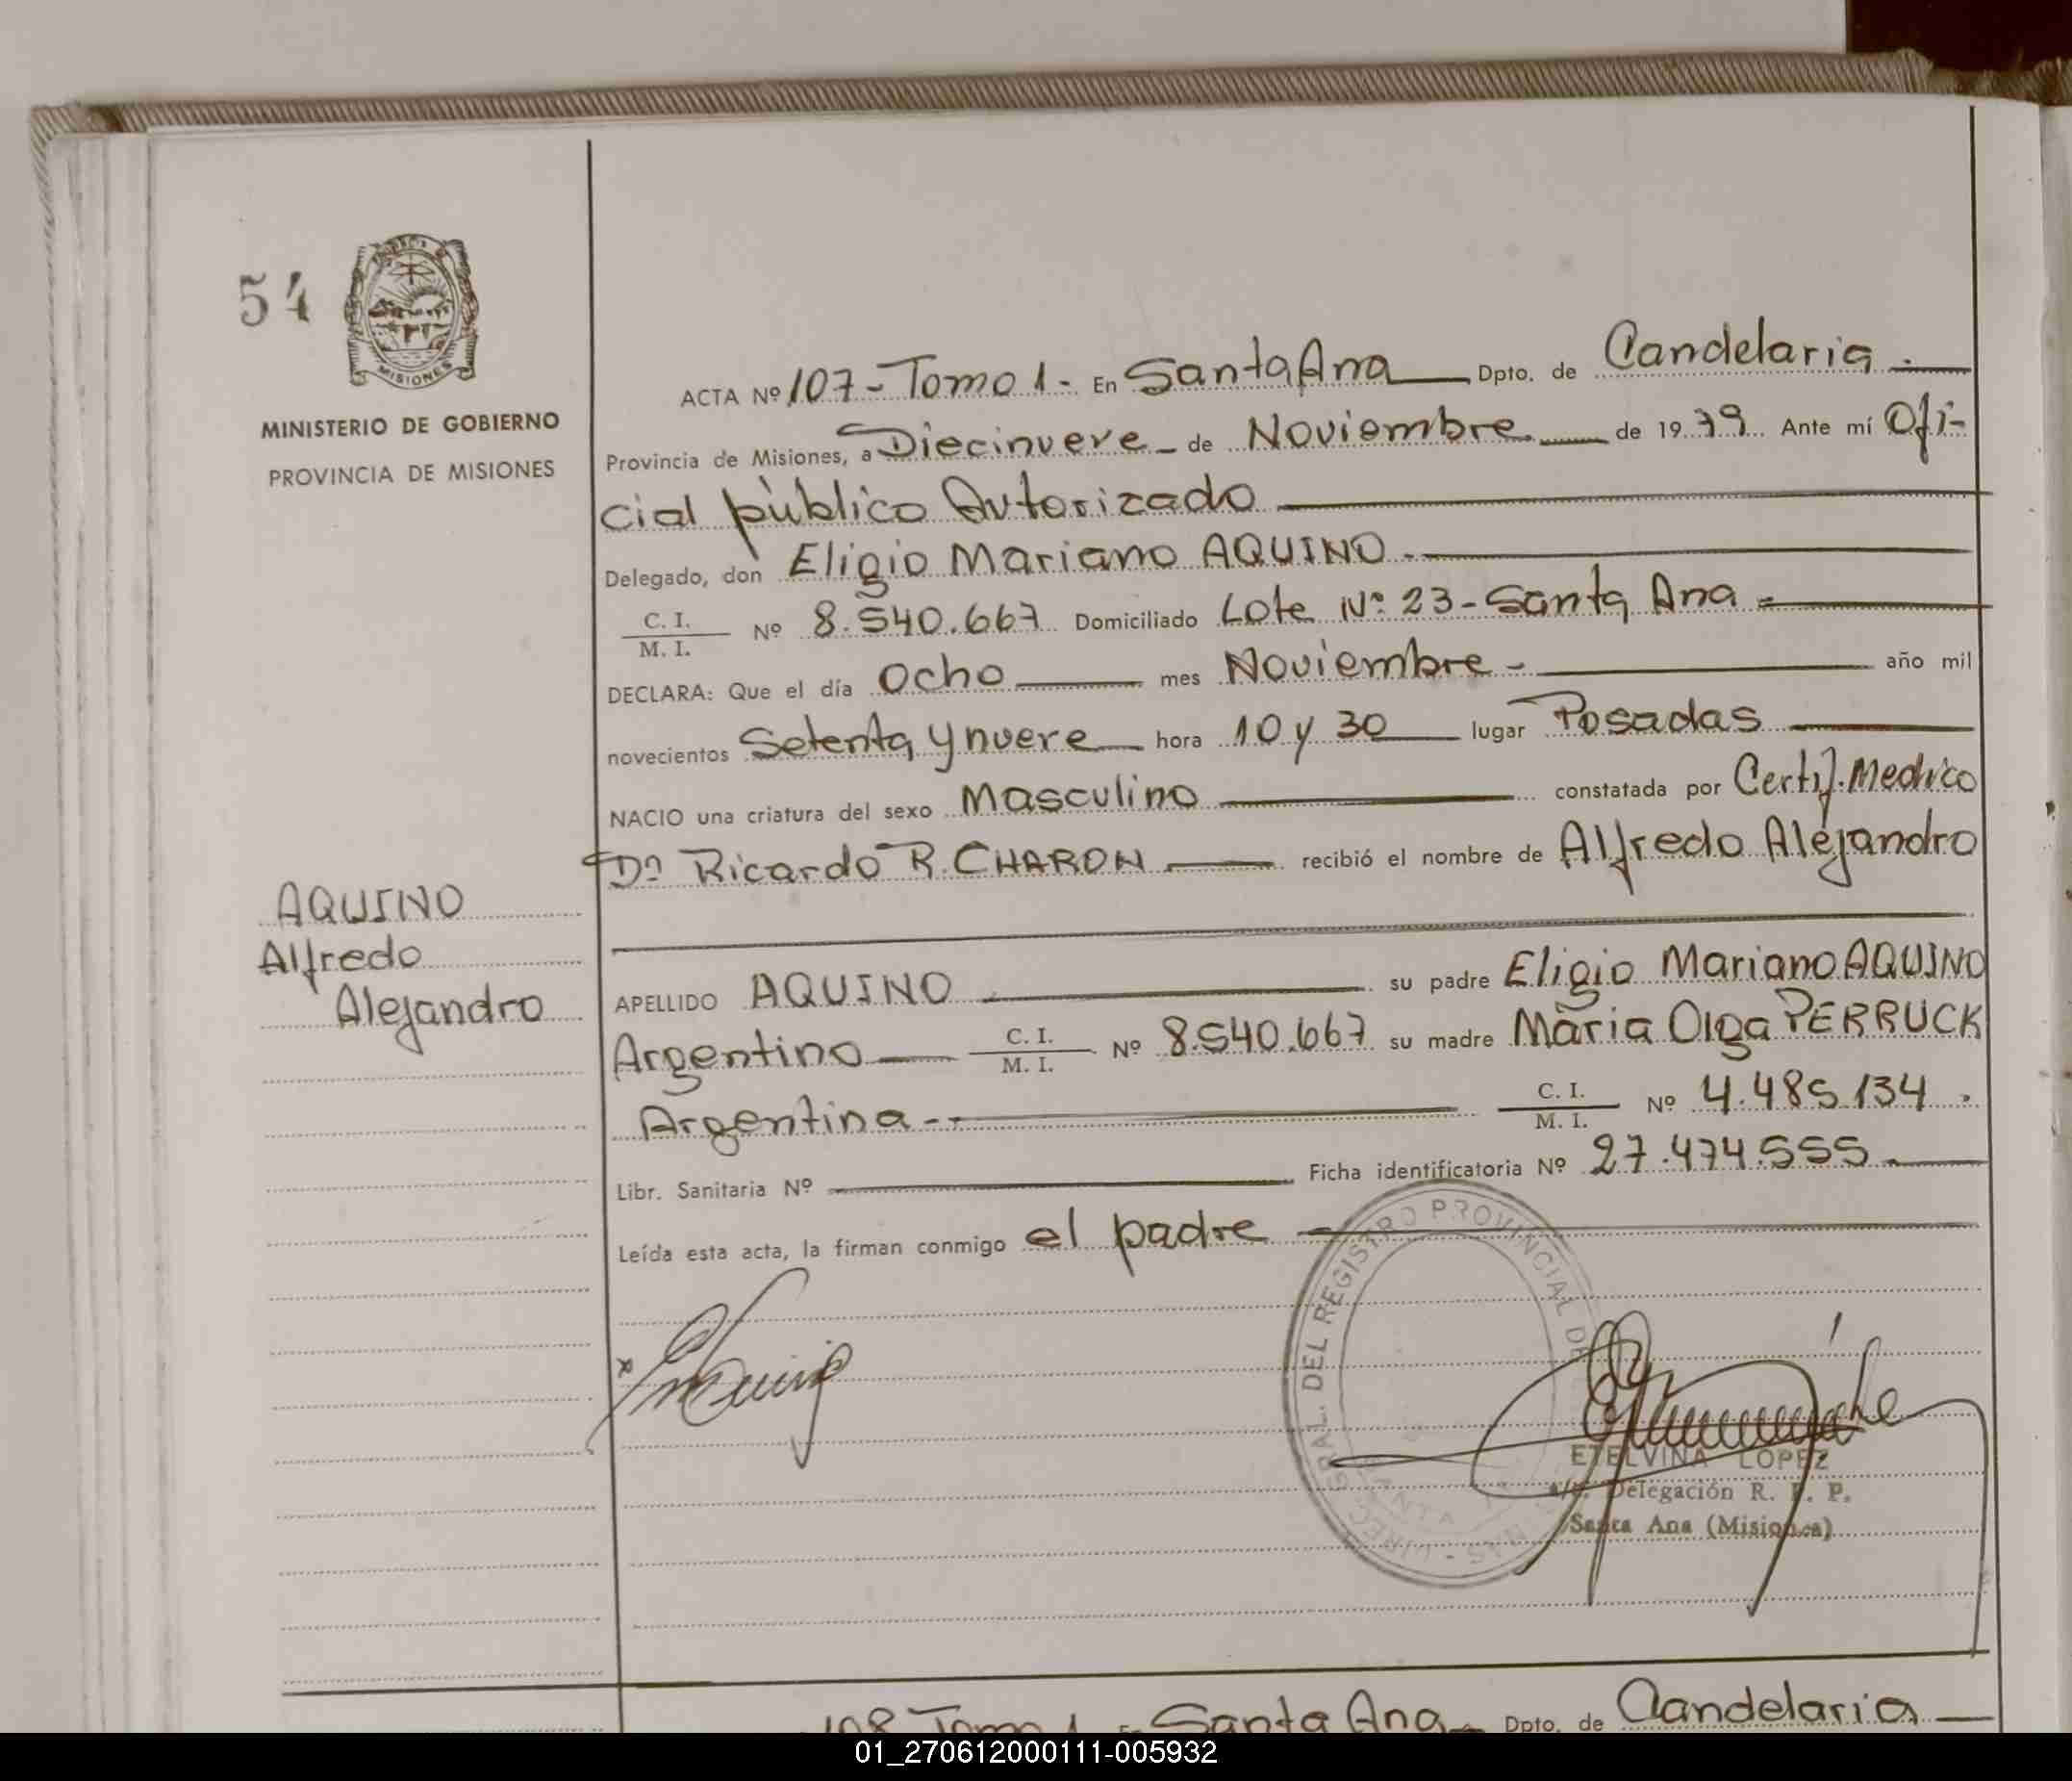 54
MISIONES
MINISTERIO DE GOBIERNO
PROVINCIA DE MISIONES
AQUINO
Alfredo
Alejandro
ACTA Nº 107 - Tomo 1 - En Santa Ana Dpto. de Candelaria.
Provincia de Misiones, a Diecinueve de Noviembre de 1979 Ante mí Ofi-
cial público Autorizado
Delegado, don Eligio Mariano AQUINO.
C. I.
M. I. Nº 8.540.667 Domiciliado Lote Nº 23 - Santa Ana
DECLARA: Que el día Ocho mes Noviembre año mil
novecientos Setenta y nueve hora 10 y 30 lugar Posadas
NACIO una criatura del sexo Masculino constatada por Certif. Medico
Dr Ricardo R. CHARON recibió el nombre de Alfredo Alejandro
APELLIDO AQUINO su padre Eligio Mariano AQUINO
Argentino C. I.
M. I. Nº 8.540.667 su madre Maria Olga PERRUCK
Argentina C. I.
M. I. Nº 4.485.134.
Libr. Sanitaria Nº Ficha identificatoria Nº 27.474.555.
Leída esta acta, la firman conmigo el padre
GRAL. DEL REGISTRO PROVINCIAL DE
ETELVINA LOPEZ
Delegación R. P. P.
Santa Ana (Misiones)
108 Tomo 1 En Santa Ana Dpto. de Candelaria
01_270612000111-005932